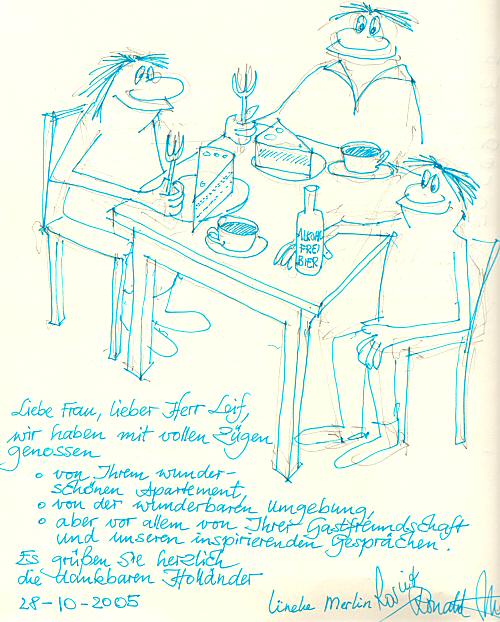 ALKOHOL
FREI
BIER
Liebe Frau, lieber Herr Leif,
wir haben mit vollen Zügen
genossen
o von Ihrem wunder-
schönen Apartement,
o von der wunderbaren Umgebung,
o aber vor allem von Ihrer Gastfreundschaft
und unseren inspirierenden Gesprächen.
Es grüßen Sie herzlich
die dankbaren Holländer
28-10-2005
Lineke Merlin
Ronald